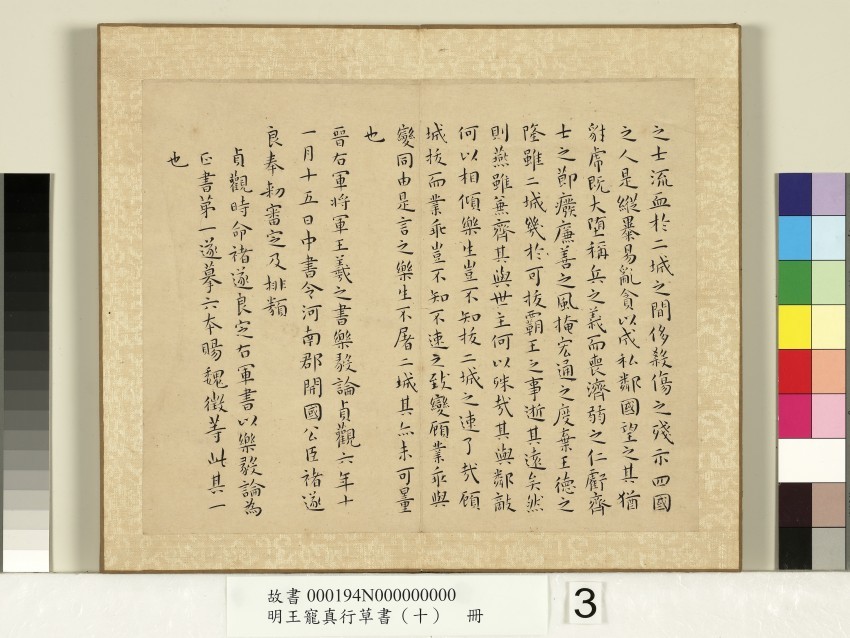 之士流血於二城之間侈殺傷之殘示四國
之人是縱暴易亂貪以成私鄰國望之其猶
豺虎既大墮稱兵之義而喪濟弱之仁虧齊
士之節廢廉善之風掩宏通之度棄王德之
隆雖二城幾於可拔霸王之事逝其遠矣然
則燕雖兼齊其與世主何以殊哉其與鄰敵
何以相傾樂生豈不知拔二城之速了哉顧
城拔而業乖豈不知不速之致變顧業乖與
變同由是言之樂生不屠二城其亦未可量
也
晉右軍將軍王羲之書樂毅論貞觀六年十
一月十五日中書令河南郡開國公臣褚遂
良奉勅審定及排類
貞觀時命褚遂良定右軍書以樂毅論為
正書第一遂摹六本賜魏徵等此其一
也
故書 000194N000000000
明王寵真行草書（十） 冊
3